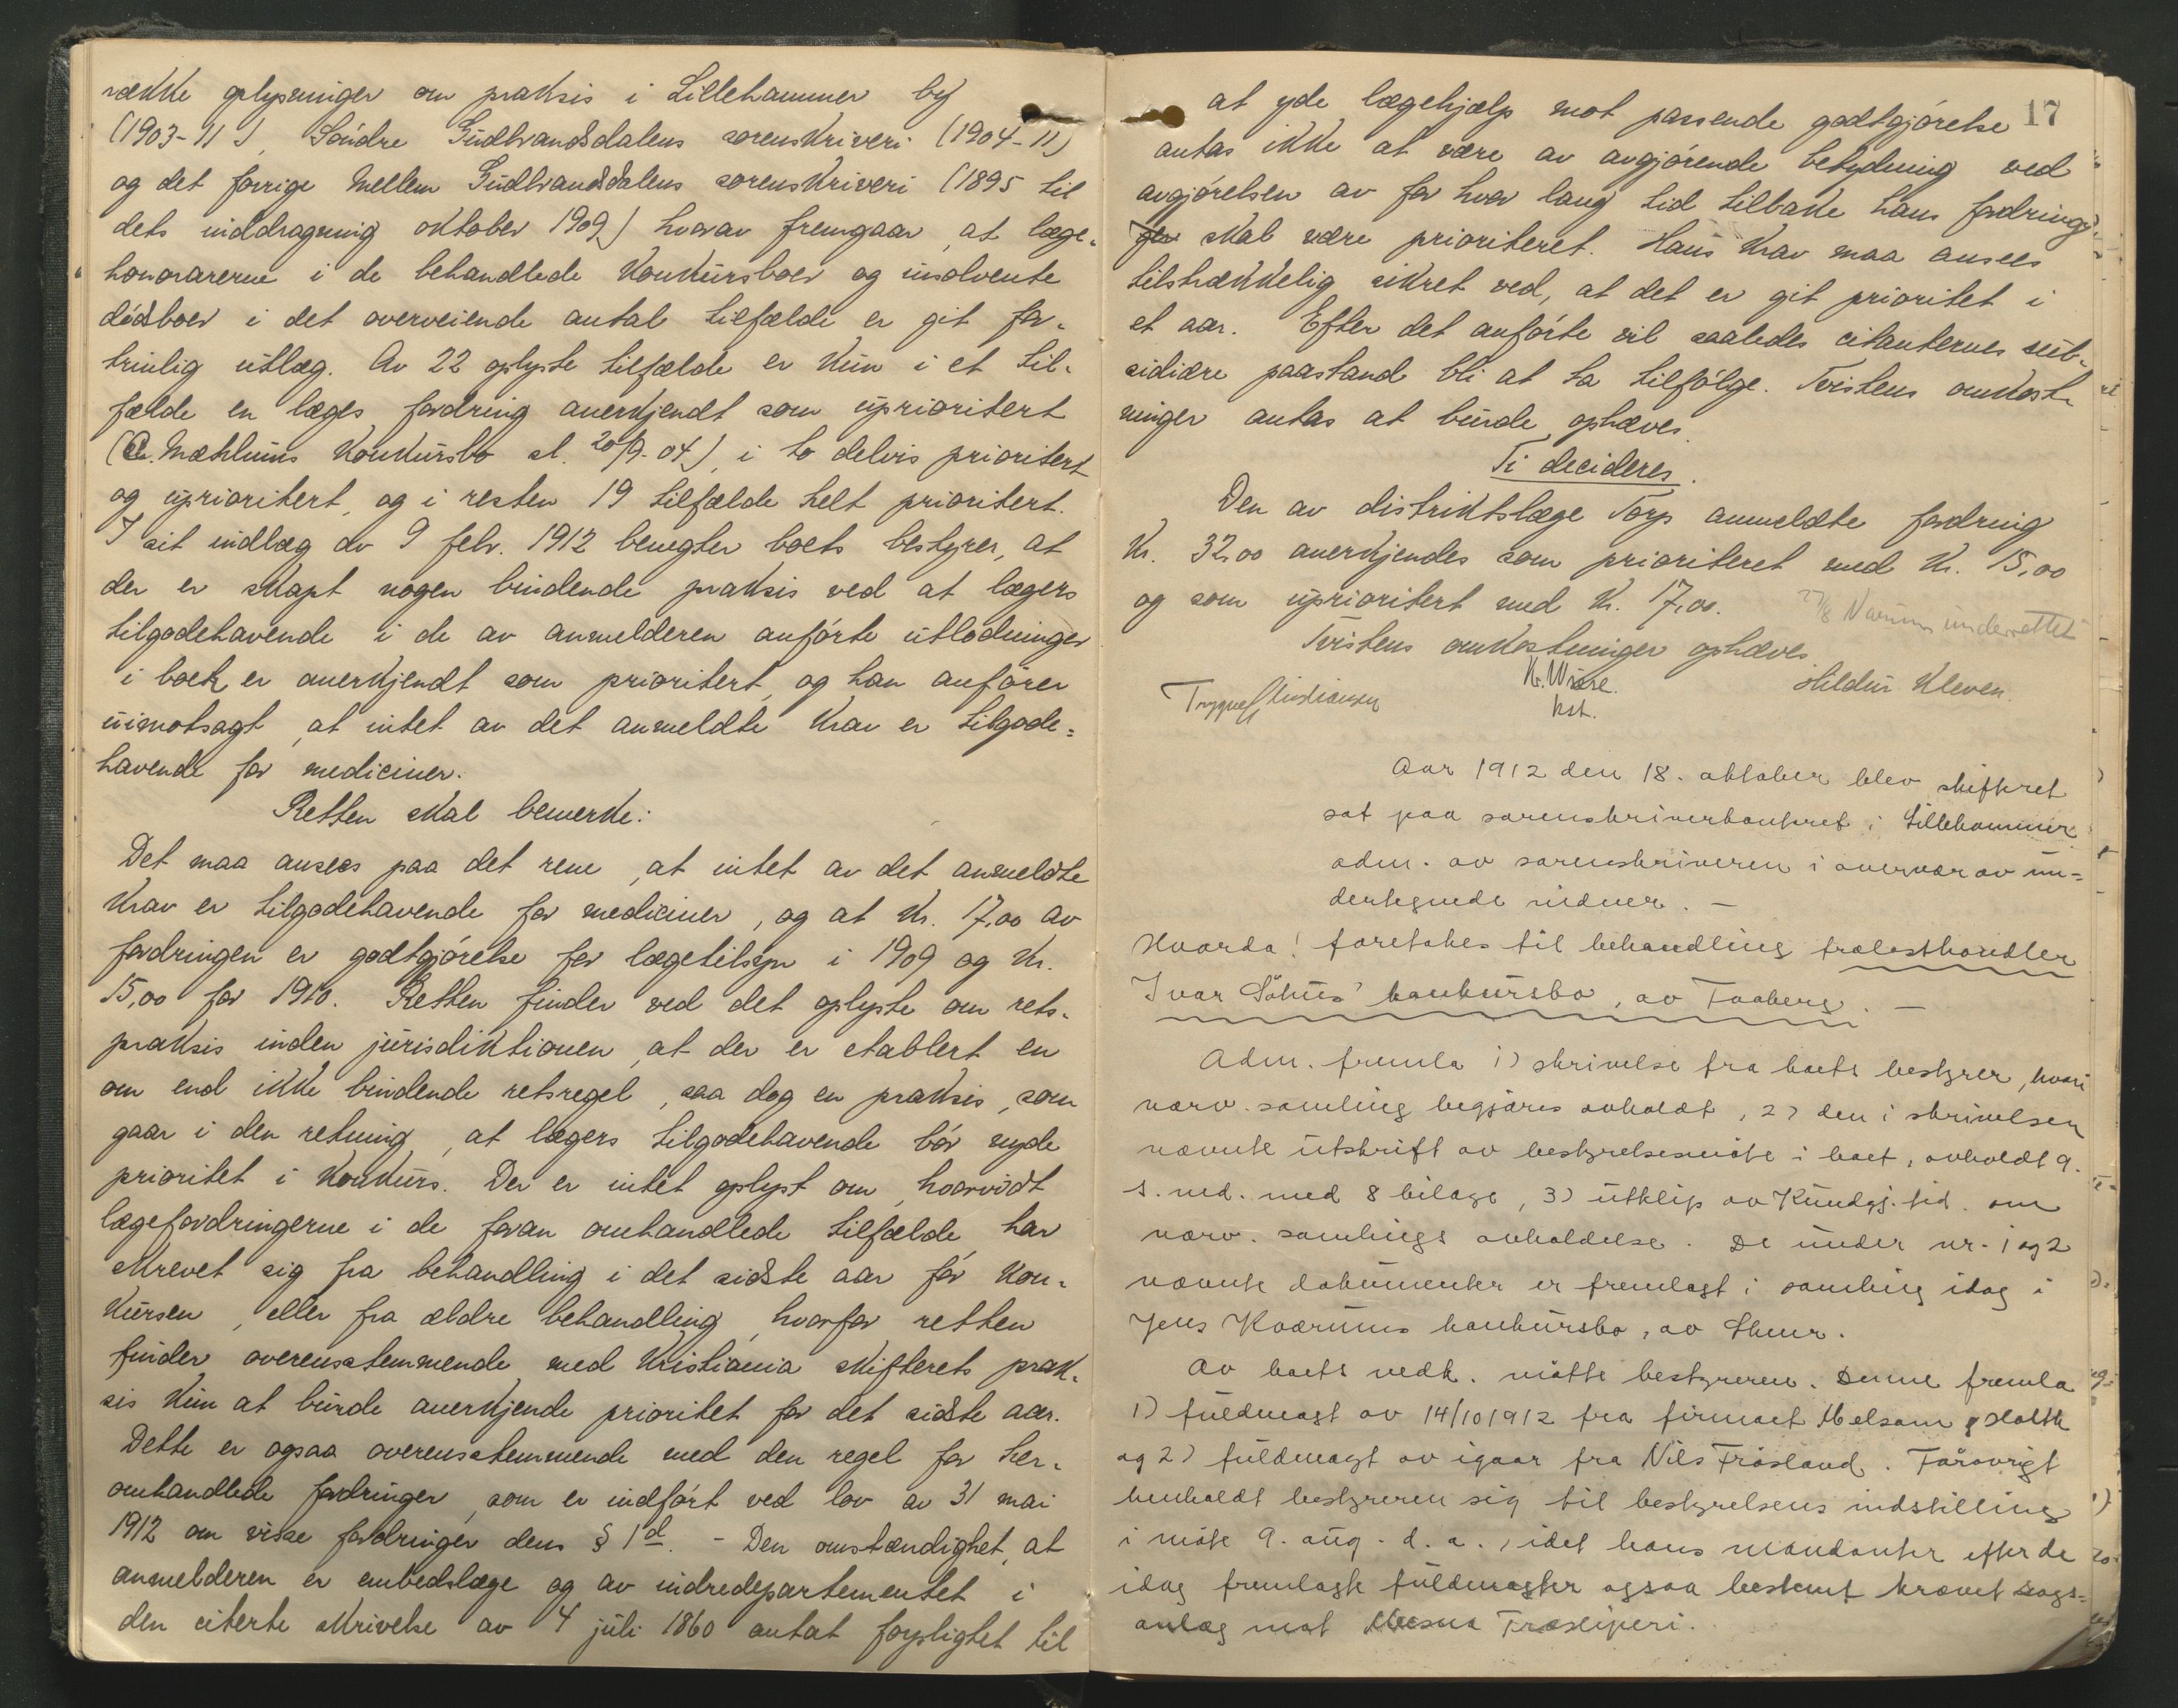 række oplysninger om praksis i Lillehammer by
(1903-11), Söndre Gudbrandsdalens sorenskriveri (1904-11)
og det forrige Mellem Gudbrandsdalens sorenskriveri (1895 til
dets inddragning oktober 1909) hvorav fremgaar, at læge-
honorarerne i de behandlede konkursboer og insolvente
dødsboer i det overveiende antal tilfælde er git for-
trinlig utlæg. Av 22 oplyste tilfælde er kun i et til-
fælde en læges fordring anerkjendt som uprioritert
(A. Mæhlums konkursbo sl. 20/9-04), i to delvis prioritert
og uprioritert, og i resten 19 tilfælde helt prioritert.
I sit indlæg av 9 febr. 1912 benegter boets bestyrer, at
der er skapt nogen bindende praksis ved at lægers
tilgodehavende i de av anmelderen anførte utlodninger
i boer er anerkjendt som prioritert, og han anfører
uimotsagt, at intet av det anmeldte krav er tilgode-
havende for mediciner.
Retten skal bemerke:
Det maa ansees paa det rene, at intet av det anmeldte
krav er tilgodehavende for mediciner, og at kr. 17,00 av
fordringen er godtgjørelse for lægetilsyn i 1909 og kr.
15,00 for 1910. Retten finder ved det oplyste om rets-
praksis inden jurisdiktionen, at der er etablert en
om end ikke bindende retsregel, saa dog en praksis, som
gaar i den retning, at lægers tilgodehavende bør nyde
prioritet i konkurs. Der er intet oplyst om, hvorvidt
lægefordringerne i de foran omhandlede tilfælde har
skrevet sig fra behandling i det sidste aar før kon-
kursen, eller fra ældre behandling, hvorfor retten
finder overensstemmende med Kristiania skifterets prak-
sis kun at burde anerkjende prioritet for det sidste aar.
Dette er ogsaa overensstemmende med den regel for her-
omhandlede fordringer, som er indført ved lov av 31 mai
1912 om visse fordringer dens § 1 d. - Den omstændighet, at
anmelderen er embedslæge og av indredepartementet i
den citerte skrivelse av 4 juli 1860 antat forpligtet til
17
at yde lægehjælp mot passende godtgjørelse
antas ikke at være av avgjørende betydning ved
avgjørelsen av for hvor lang tid tilbake hans fordring
skal være prioriteret. Hans krav maa ansees
tilstrækkelig sikret ved, at det er git prioritet i
et aar. Efter det anførte vil saaledes citanternes sub-
sidiære paastand bli at ta tilfølge. Tvistens omkost-
ninger antas at burde ophæves.
Ti decideres.
Den av distriktslæge Torp anmeldte fordring
kr. 32,00 anerkjendes som prioriteret med kr. 15,00
og som uprioritert med kr. 17,00.
underrettet
Tvistens omkostninger ophæves.
Kr. Wisre.
kst.
Hildur Kleven.
Trygve Kristiansen
Aar 1912 den 18. oktober blev skifteret
sat paa sorenskriverkontoret i Lillehammer
adm. av sorenskriveren i overvær av un-
dertegnede vidner. —
Hvorda! foretokes til behandling trælasthandler
Ivar Söhus' konkursbo, av Faaberg. —
Adm. fremla 1) skrivelse fra boets bestyrer, hvori
nærv. samling begjæres avholdt, 2) den i skrivelsen
nævnte utskrift av bestyrelsesmøte i boet, avholdt 9.
s. md. med 8 bilage, 3) utklip av Kundgj. tid. om
nærv. samlings avholdelse. De under nr. 1 og 2
nævnte dokumenter er fremlagt i samling idag i
Jens Kværums konkursbo, av
Av boets vedk. møtte bestyreren. Denne fremla
1) fuldmagt av 14/10 1912 fra firmaet Melsom & Holtk
og 2) fuldmagt av igaar fra Nils Fröisland. Forøvrigt
henholdt bestyreren sig til bestyrelsens indstilling
i møte 9. aug. d. a., idet hans mandanter efter de
idag fremlagte fuldmagter ogsaa bestemt krævet sags-
anlæg mot Mesna Træsliperi.